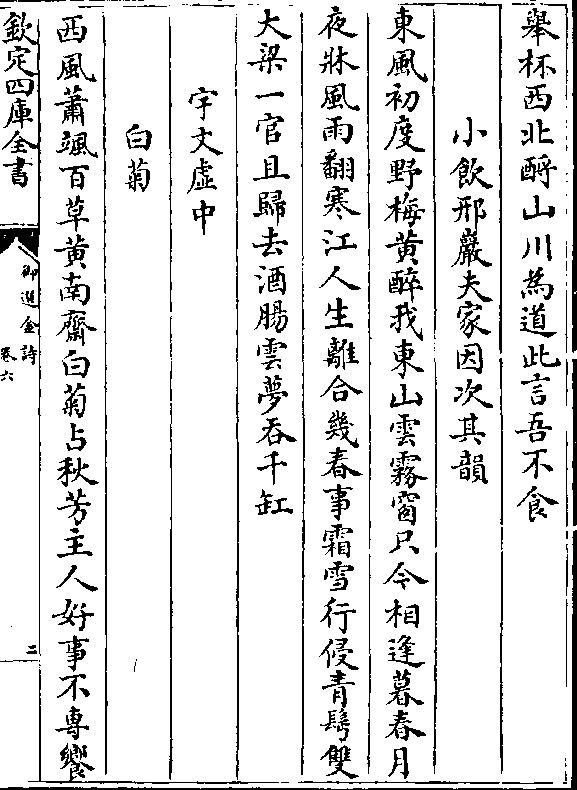 舉杯西北酹山川為道此言吾不食
小飲邢巖夫家因次其韻
東風初度野梅黄醉我東山雲霧窗只今相逢暮春月
夜牀風雨翻寒江人生離合幾春事霜雪行侵青鬢雙
大梁一官且歸去酒腸雲夢吞千缸
宇文虛中
白菊
西風蕭颯百草黄南齋白菊占秋芳主人好事不專饗
欽定四庫全書
御選金詩
卷六
二